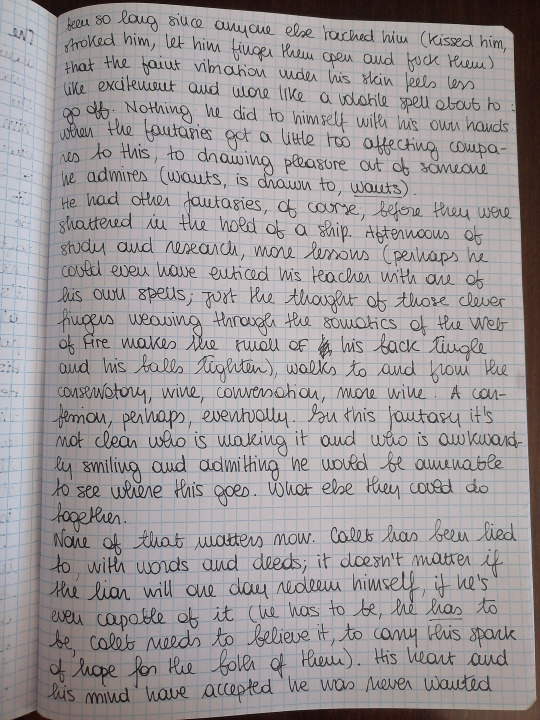 been so long since anyone else touched him (kissed him,
stroked him, let him finger them open and fuck them)
that the faint vibration under his skin feels less
like excitement and more like a volatile spell about to
go off. Nothing he did to himself with his own hands
when the fantasies got a little too affecting compa-
res to this, to drawing pleasure out of someone
he admires (wants, is drawn to, wants).
He had other fantasies, of course, before they were
shattered in the hold of a ship. Afternoons of
study and research, more lessons (perhaps he
could even have enticed his teacher with one of
his own spells; just the thought of those clever
fingers weaving through the somatics of the Web
of Fire makes the small of his back tingle
and his balls tighten), walks to and from the
conservatory, wine, conversation, more wine. A con-
fession, perhaps, eventually. In this fantasy it's
not clear who is making it and who is awkward-
ly smiling and admitting he would be amenable
to see where this goes. What else they could do
together.
None of that matters now. Caleb has been lied
to, with words and deeds; it doesn't matter if
the liar will one day redeem himself, if he's
even capable of it (he has to be, he has to
be, Caleb needs to believe it, to carry this spark
of hope for the both of them). His heart and
his mind have accepted he was never wanted
The